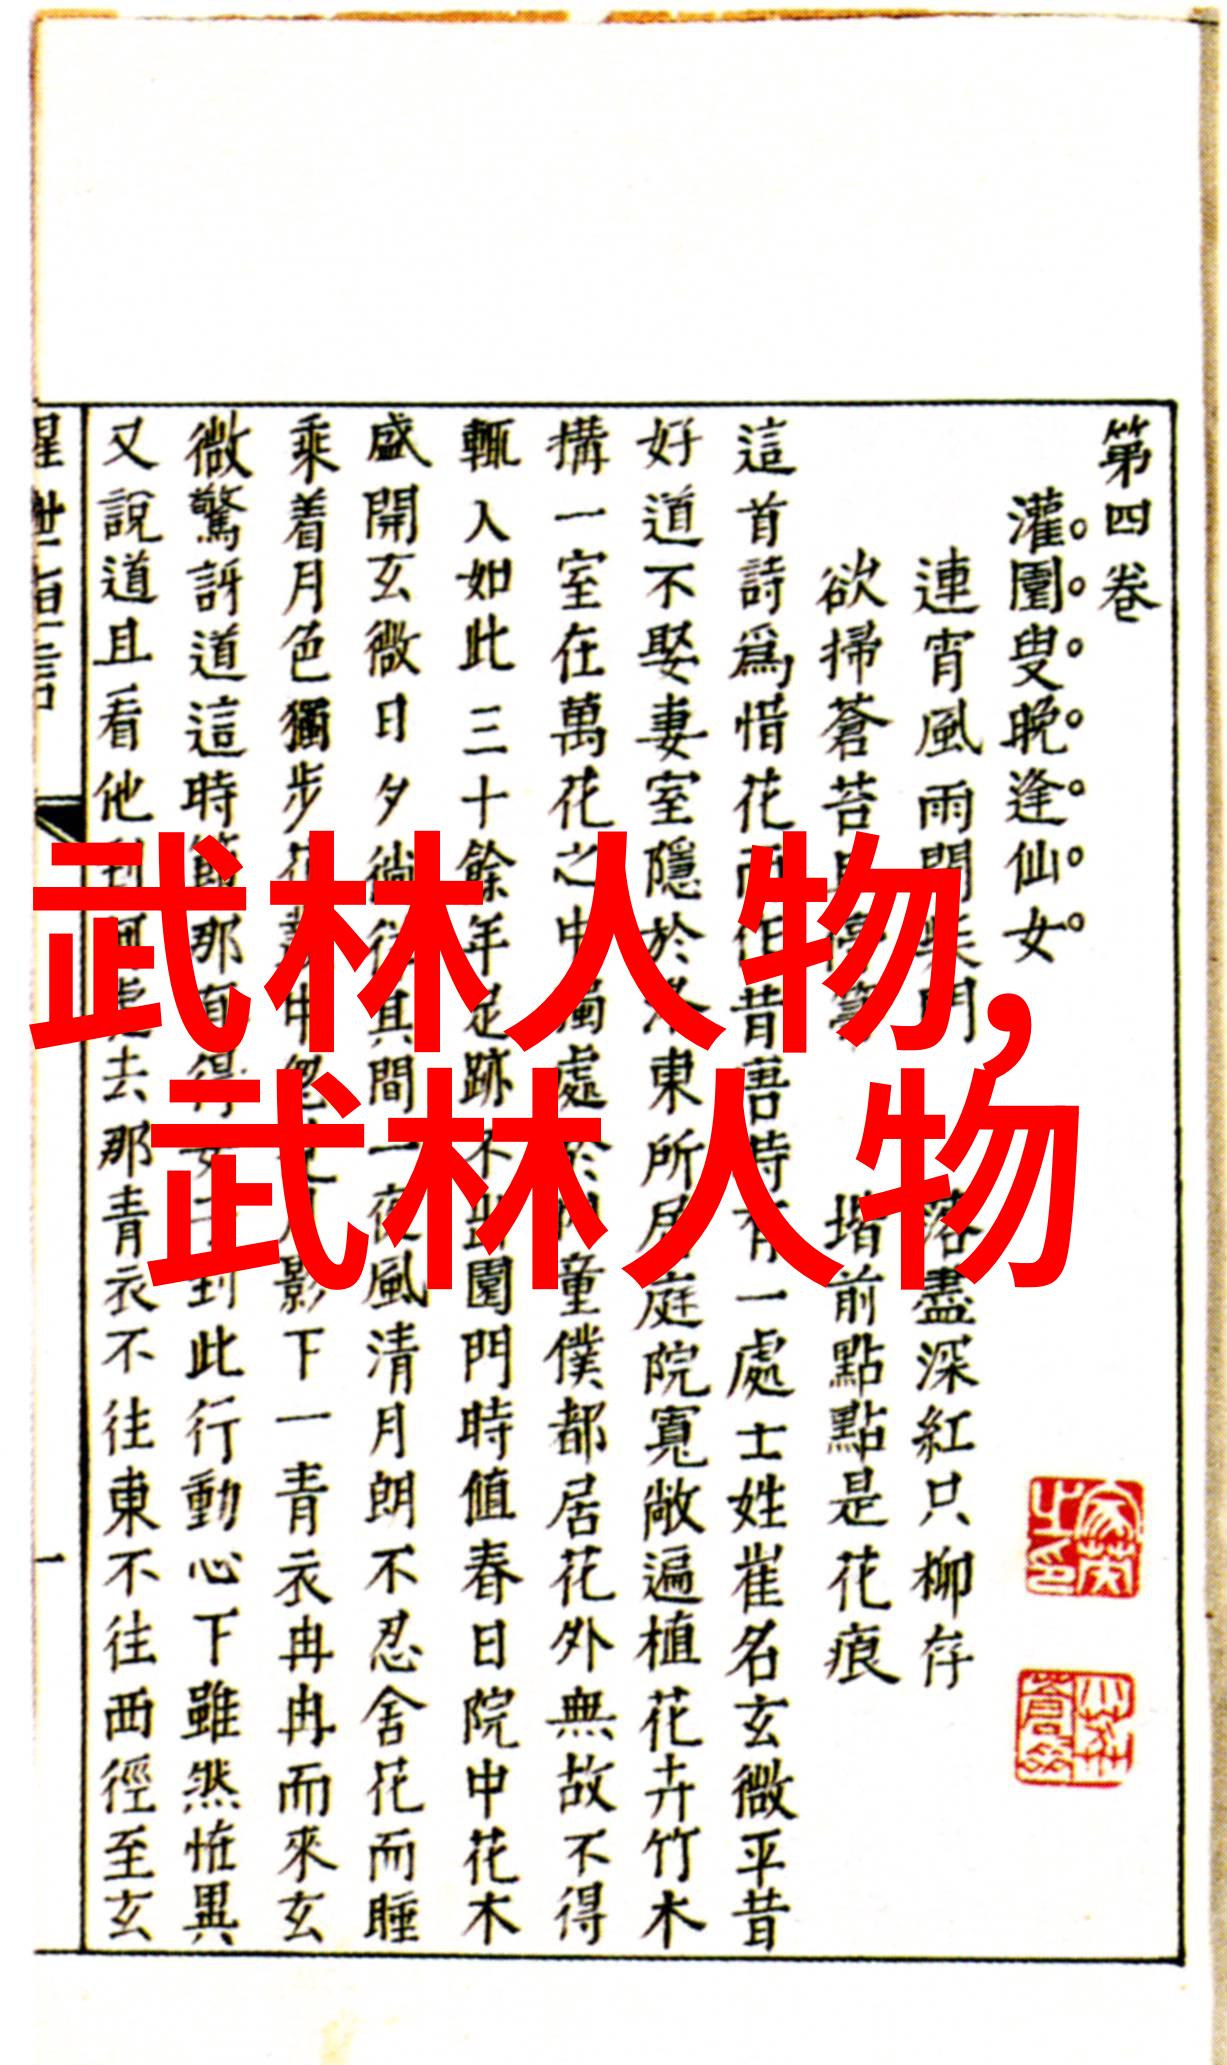 第四卷
灌園叟晚逢仙女
連宵風雨閉柴門 落盡深紅只柳存
欲掃蒼苔且停帚 堦前點點是花痕
這首詩爲惜花而作昔唐時有一處士姓崔名玄微平昔
好道不娶妻室隱於洛東所居庭院寬敞遍植花卉竹木
搆一室在萬花之中獨處於內童僕都居花外無故不得
輒入如此三十餘年足跡不出園門時值春日院中花木
盛開玄微日夕徜徉其間一夜風清月朗不忍舍花而睡
乘着月色獨步花叢中忽見月影下一青衣冉冉而來玄
微驚訝道這時節那有得女子到此行動心下雖然怪異
又說道且看他到何處去那青衣不往東不往西徑至玄
一
武林人物,
武林人物